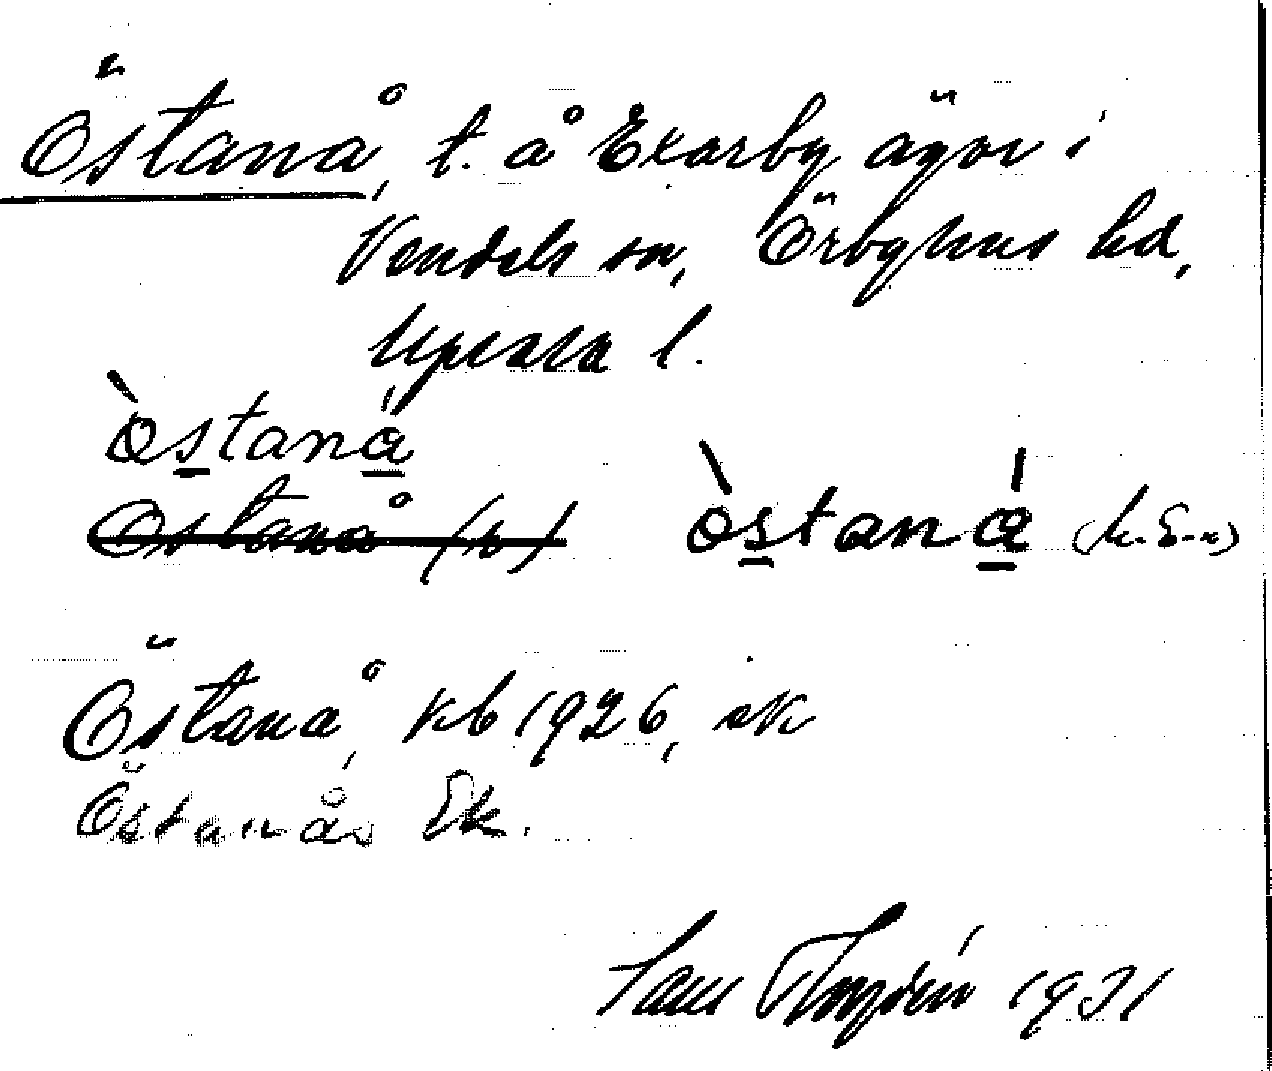 Östanå, t. å Ekarby ägor i
Vendels sn, Örbyhus hd,
Upsala l.
òstaná
Östanå (b) òstaná (M. E-n)
Östanå, kb 1926, ek
Östanås Ek.
1931